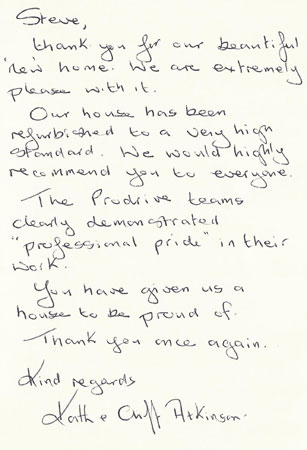 Steve,
thank you for our beautiful
'new' home. We are extremely
please with it.
Our house has been
refurbished to a very high
standard. We would highly
recommend you to everyone.
The Prodrive teams
clearly demonstrated
"professional pride" in their
work.
You have given us a
house to be proud of.
Thank you once again.
Kind regards
Kath & Cliff Atkinson.